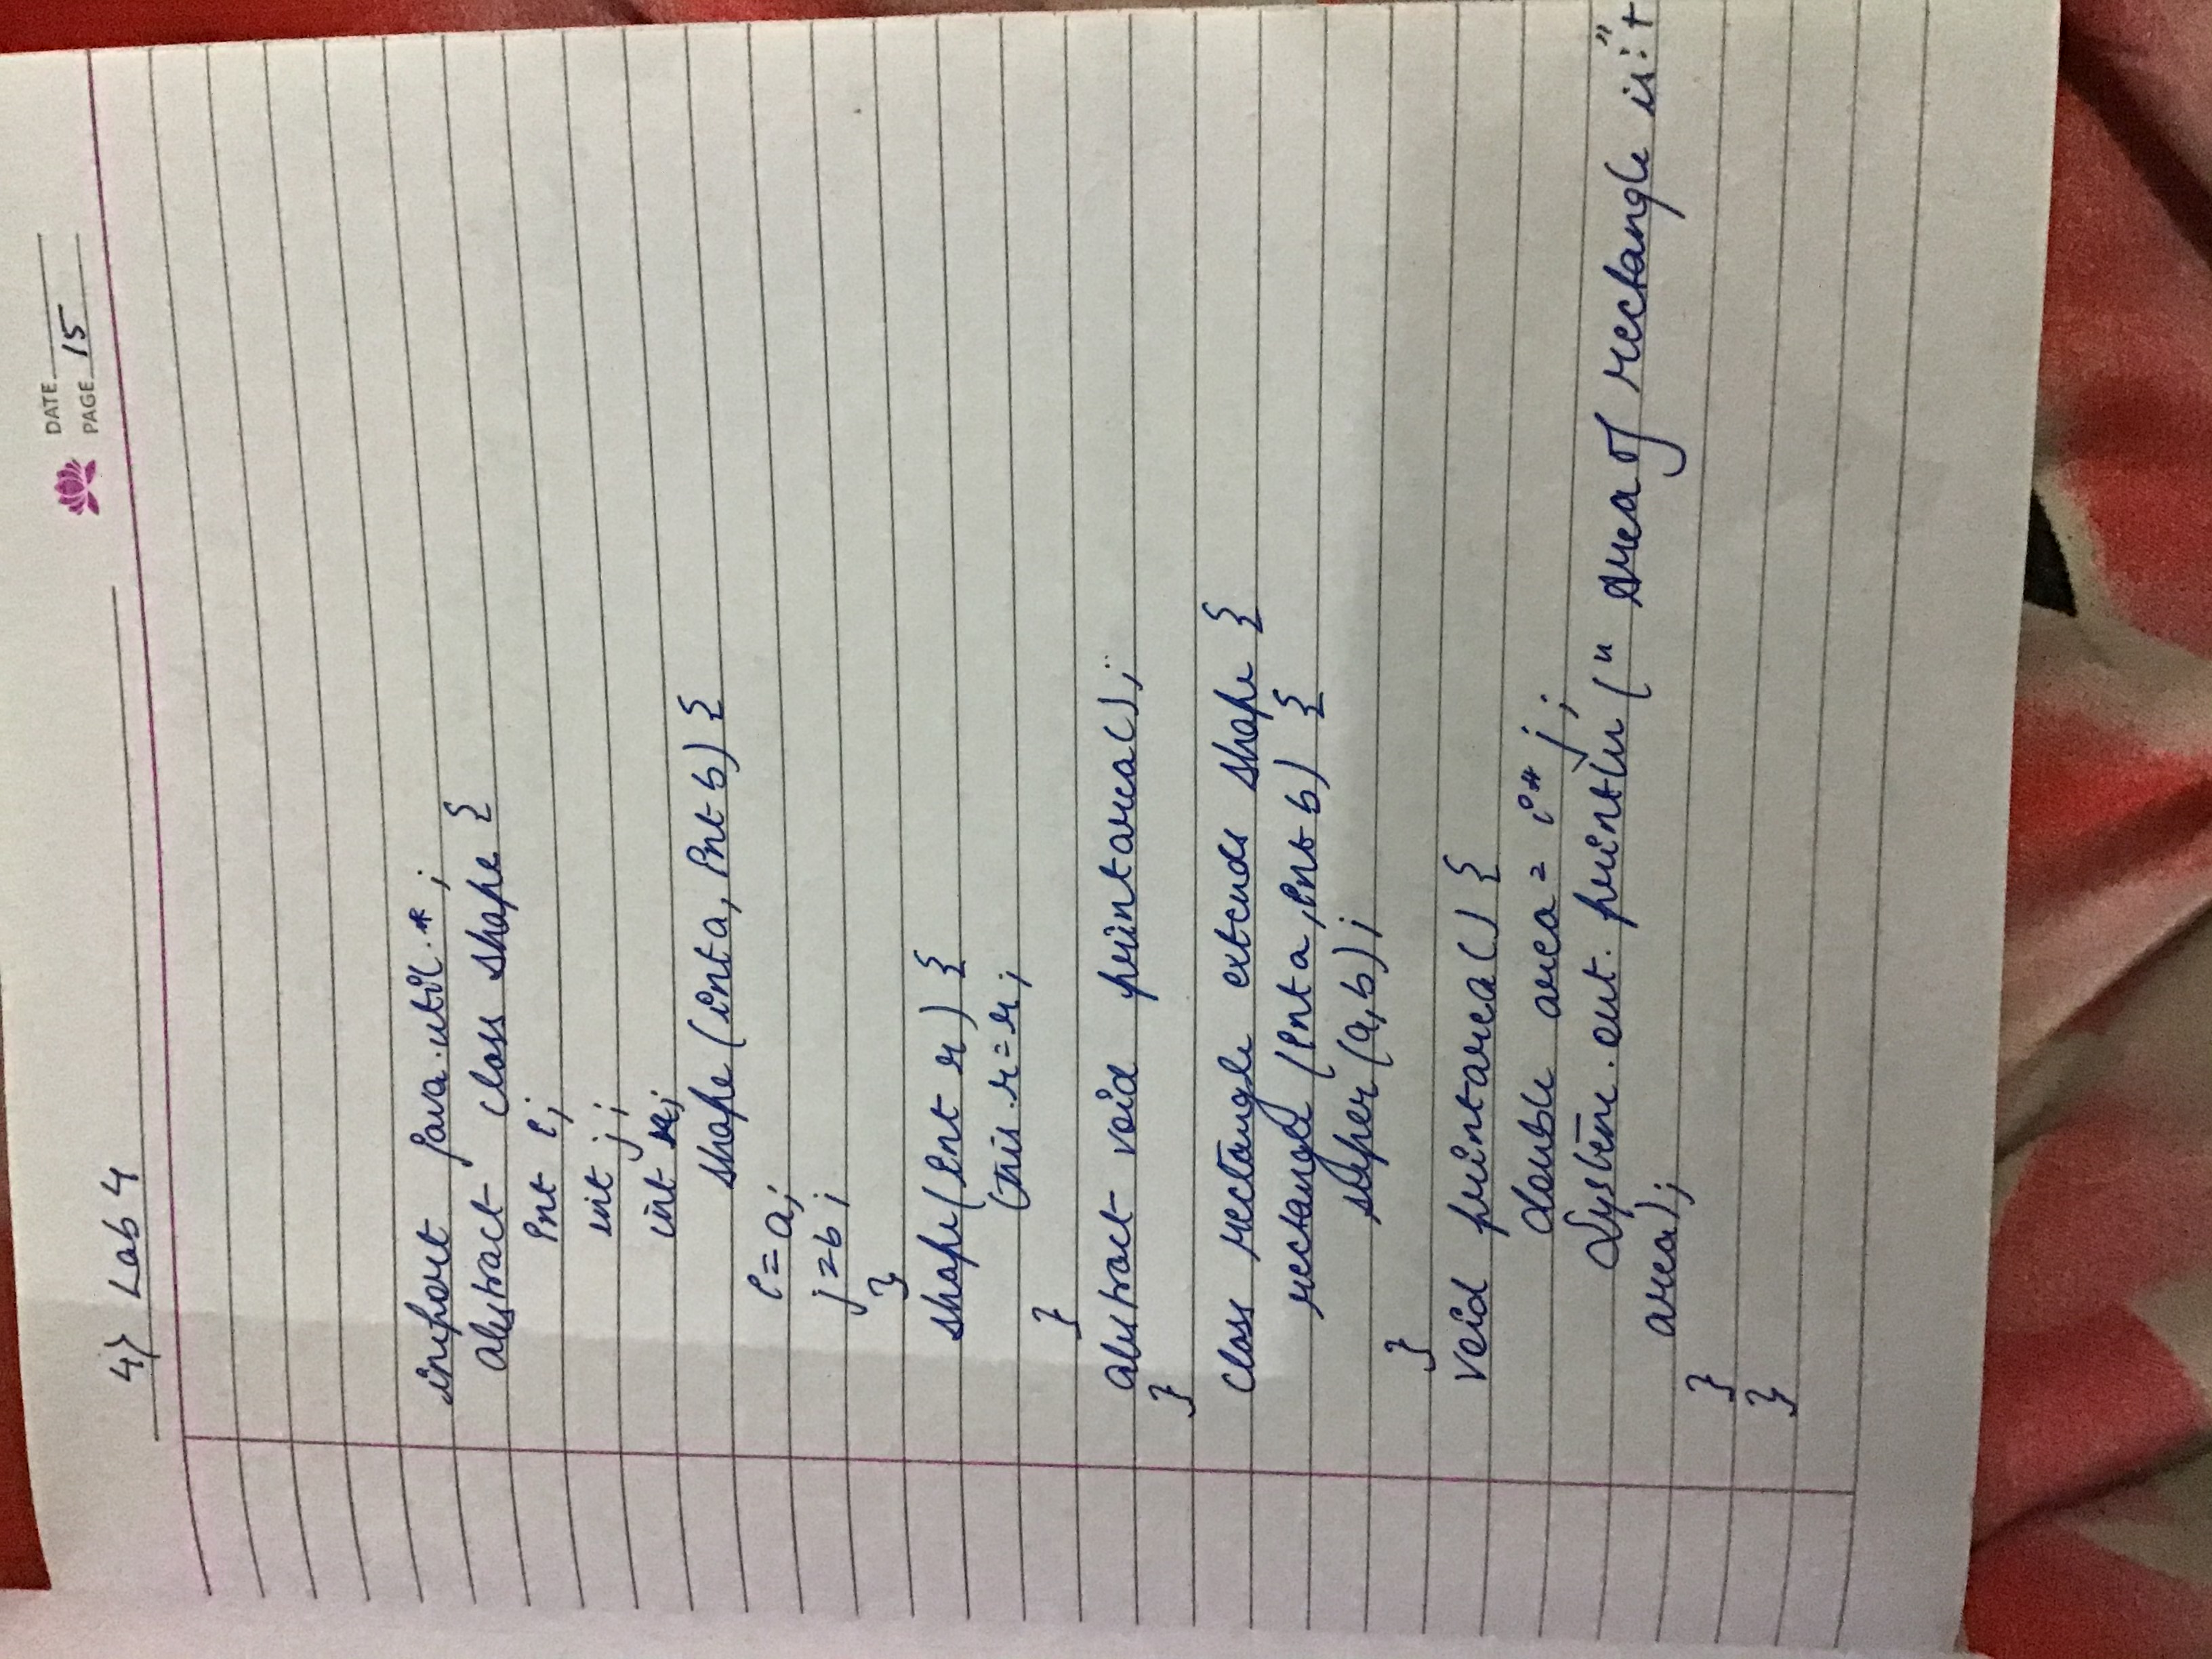 DATE
PAGE 15
4) Lab 4
import java.util.*;
abstract class shape {
int i;
int j;
int r;
shape (int a, int b) {
i = a;
j = b;
}
shape (int r) {
this.r = r;
}
abstract void printarea();
}
class rectangle extends shape {
rectangle (int a, int b) {
super (a,b);
}
void printarea() {
double area = i* j;
System.out.println (" Area of rectangle is:"+
area);
}
}